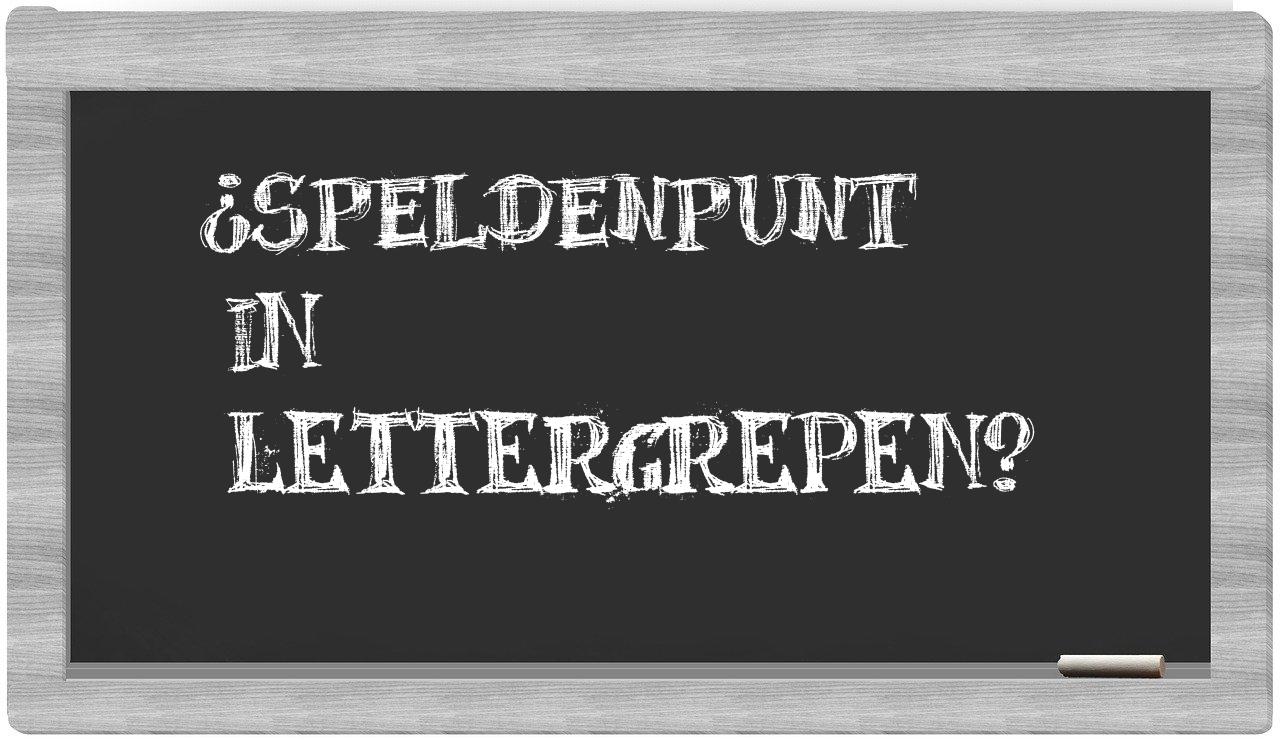 ¿SPELDENPUNT
IN
LETTERGREPEN?